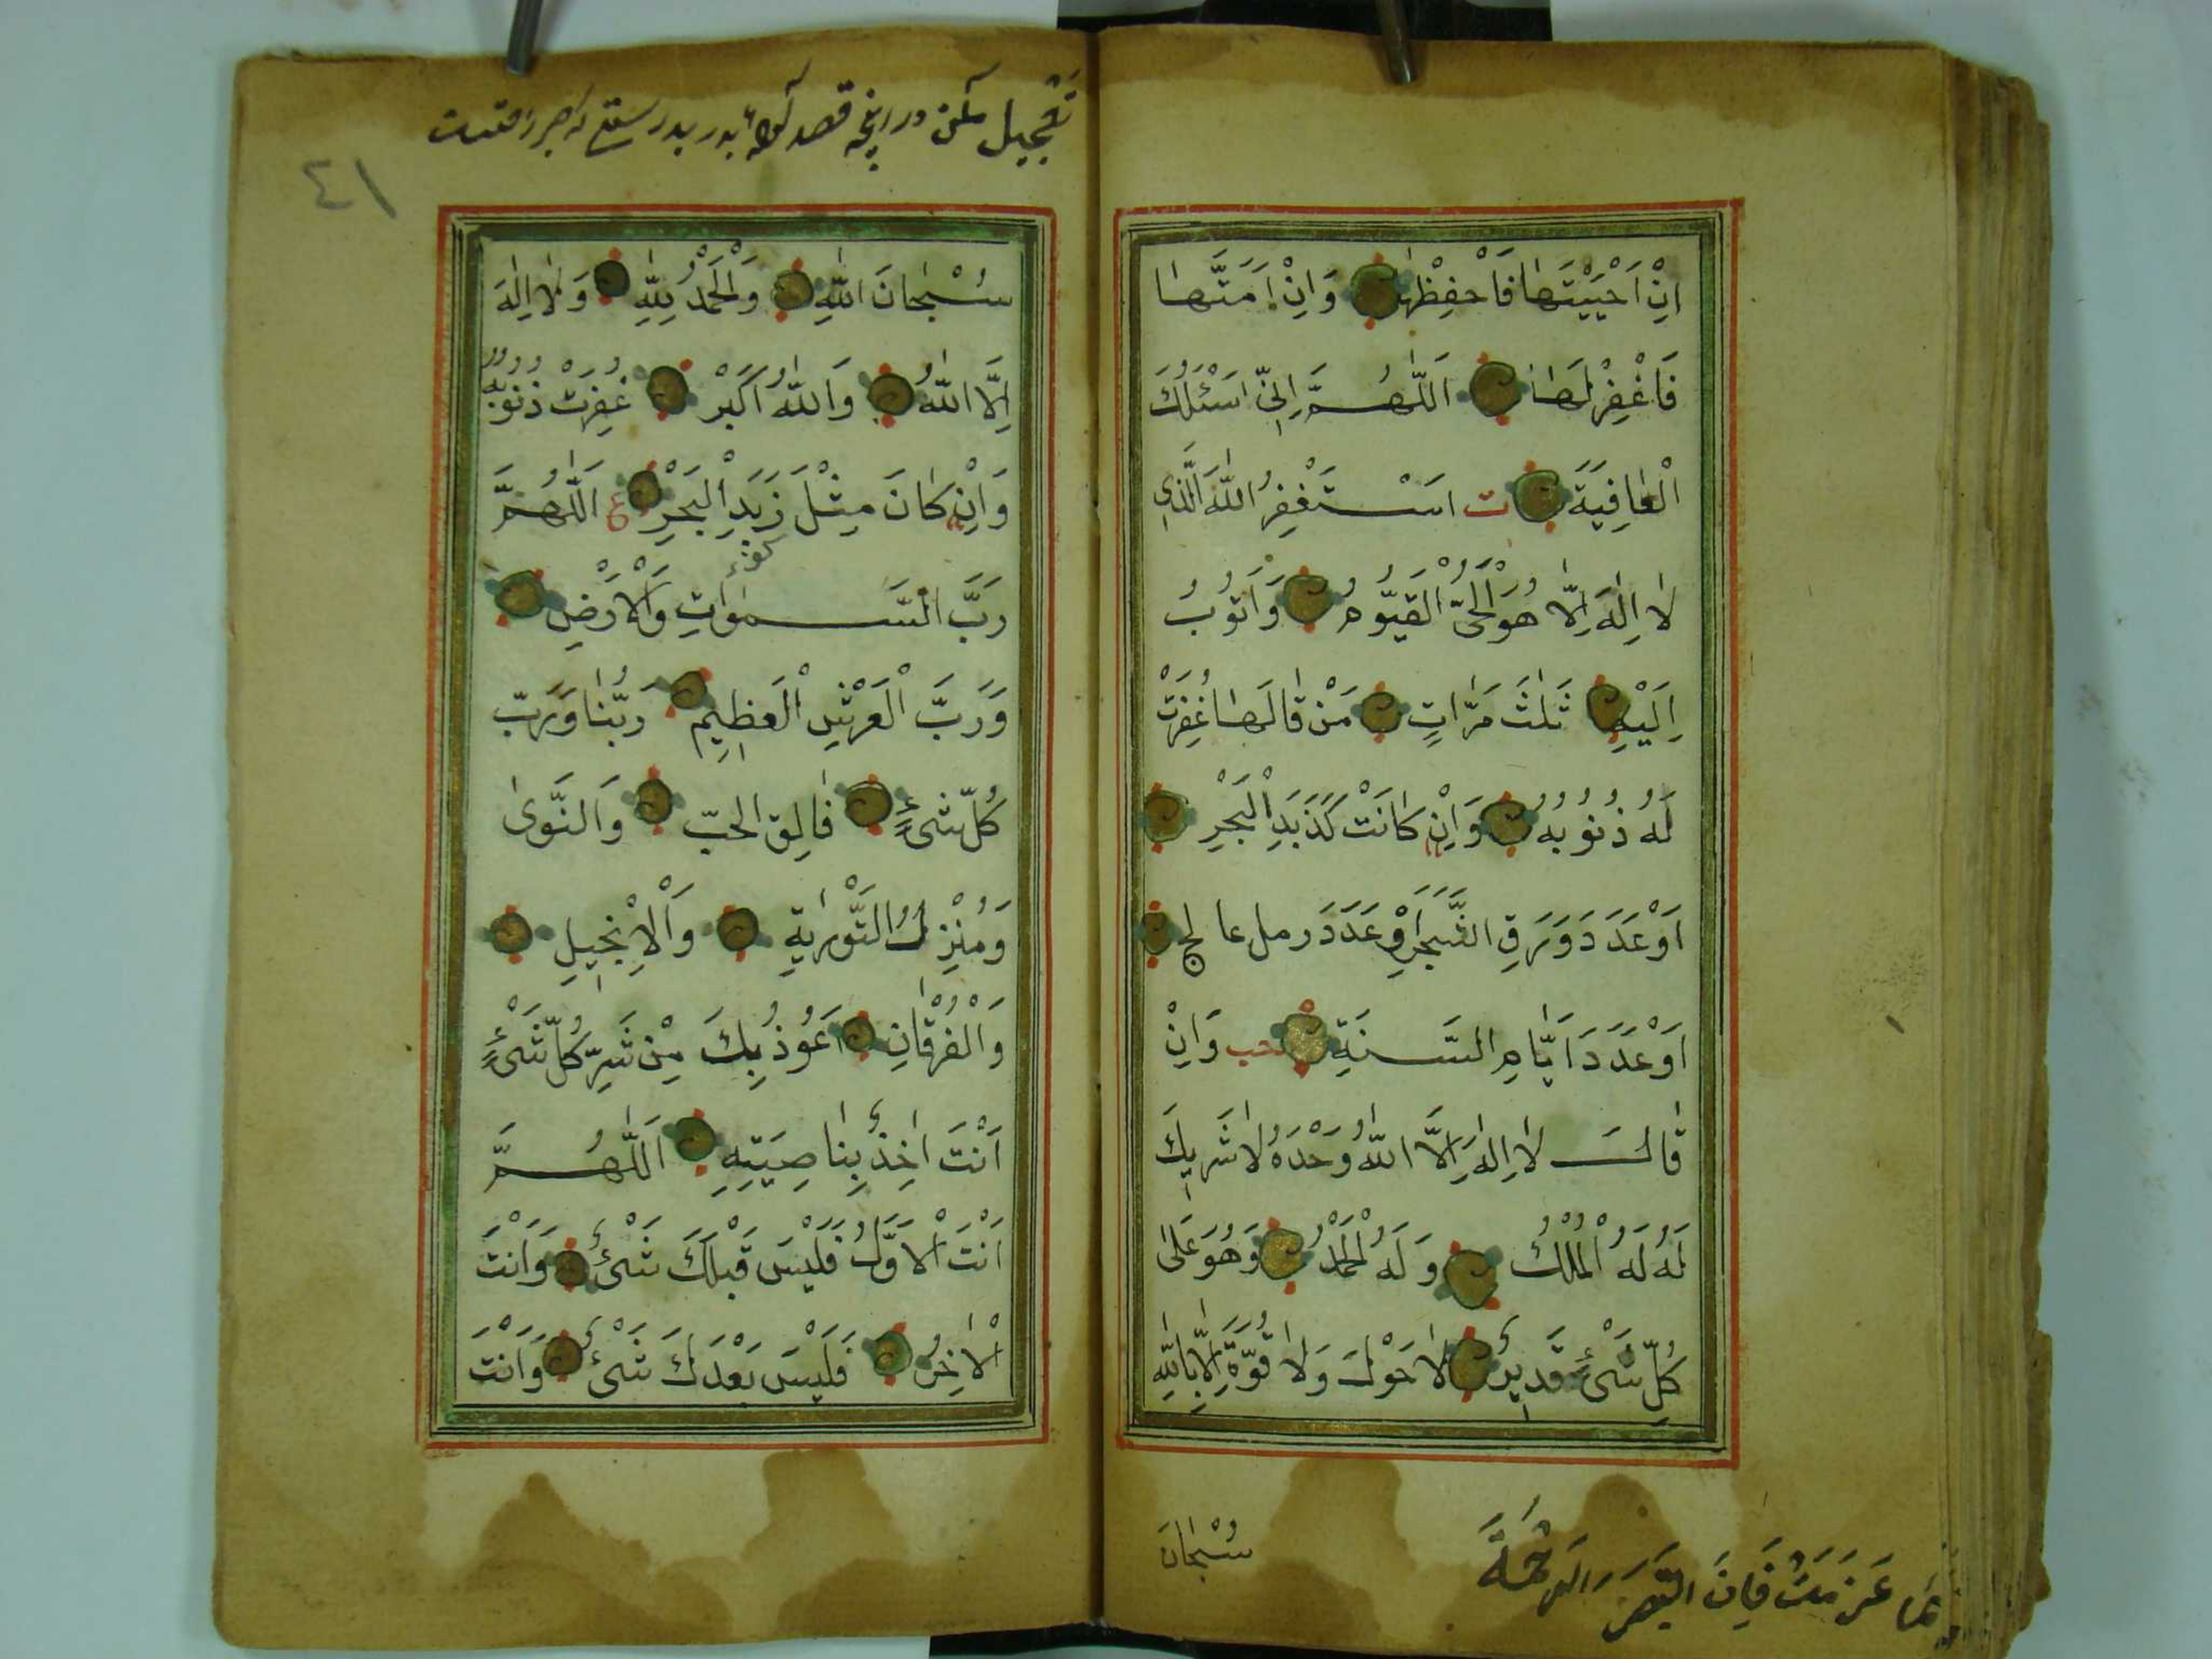 اِنْ اَحْيَيْتَهَا فَاحْفِظْهَا وَاِنْ اَمَتَّهَا
فَاغْفِرْلَهَا اَللّٰهُمَّ اِنِّى اَسْئَلُكَ
الْعَافِيَةَ ت اَسْتَغْفِرُ اللّٰهَ الَّذِى
لَا اِلٰهَ اِلَّا هُوَ الْحَىُّ الْقَيُّومُ وَاَتُوبُ
اِلَيْهِ ثَلٰثَ مَرَّاتٍ مَنْ قَالَهَا غُفِرَتْ
لَهُ ذُنُوبُهُ وَاِنْ كَانَتْ كَزَبَدِ الْبَحْرِ
اَوْ عَدَدَ وَرَقِ الشَّجَرِ اَوْ عَدَدَ رمل عالج
اَوْ عَدَدَ اَيَّامِ السَّنَةِ حب وَاِنْ
قَالَ لَا اِلٰهَ اِلَّا اللّٰهُ وَحْدَهُ لَا شَرِيكَ
لَهُ لَهُ الْمُلْكُ وَلَهُ الْحَمْدُ وَهُوَ عَلٰى
كُلِّ شَىْءٍ قَدِيرٌ لَا حَوْلَ وَلَا قُوَّةَ اِلَّا بِاللّٰهِ
سُبْحَانَ
عَزَمَتْ فَاِنَ
تعجيل مكن در قصد بدر
٤١
سُبْحَانَ اللّٰهِ وَالْحَمْدُ لِلّٰهِ وَلَا اِلٰهَ
اِلَّا اللّٰهُ وَاللّٰهُ اَكْبَرْ غُفِرَتْ ذُنُوبُهُ
وَاِنْ كَانَ مِثْلَ زَبَدِ الْبَحْرِ ع اَللّٰهُمَّ
رَبَّ السَّمٰوَاتِ وَالْاَرْضِ
وَرَبَّ الْعَرْشِ الْعَظِيمِ رَبَّنَا وَرَبَّ
كُلِّ شَىْءٍ فَالِقَ الحبّ وَالنَّوٰى
وَمُنْزِلَ التَّوْرٰيةِ وَالْاِنْجِيلِ
وَالْفُرْقَانِ اَعُوذُ بِكَ مِنْ شَرِّ كُلِّ شَىْءٍ
اَنْتَ اٰخِذٌ بِنَاصِيَتِهِ اَللّٰهُمَّ
اَنْتَ الْاَوَّلُ فَلَيْسَ قَبْلَكَ شَىْءٌ وَاَنْتَ
الْاٰخِرُ فَلَيْسَ بَعْدَكَ شَىْءٌ وَاَنْتَ